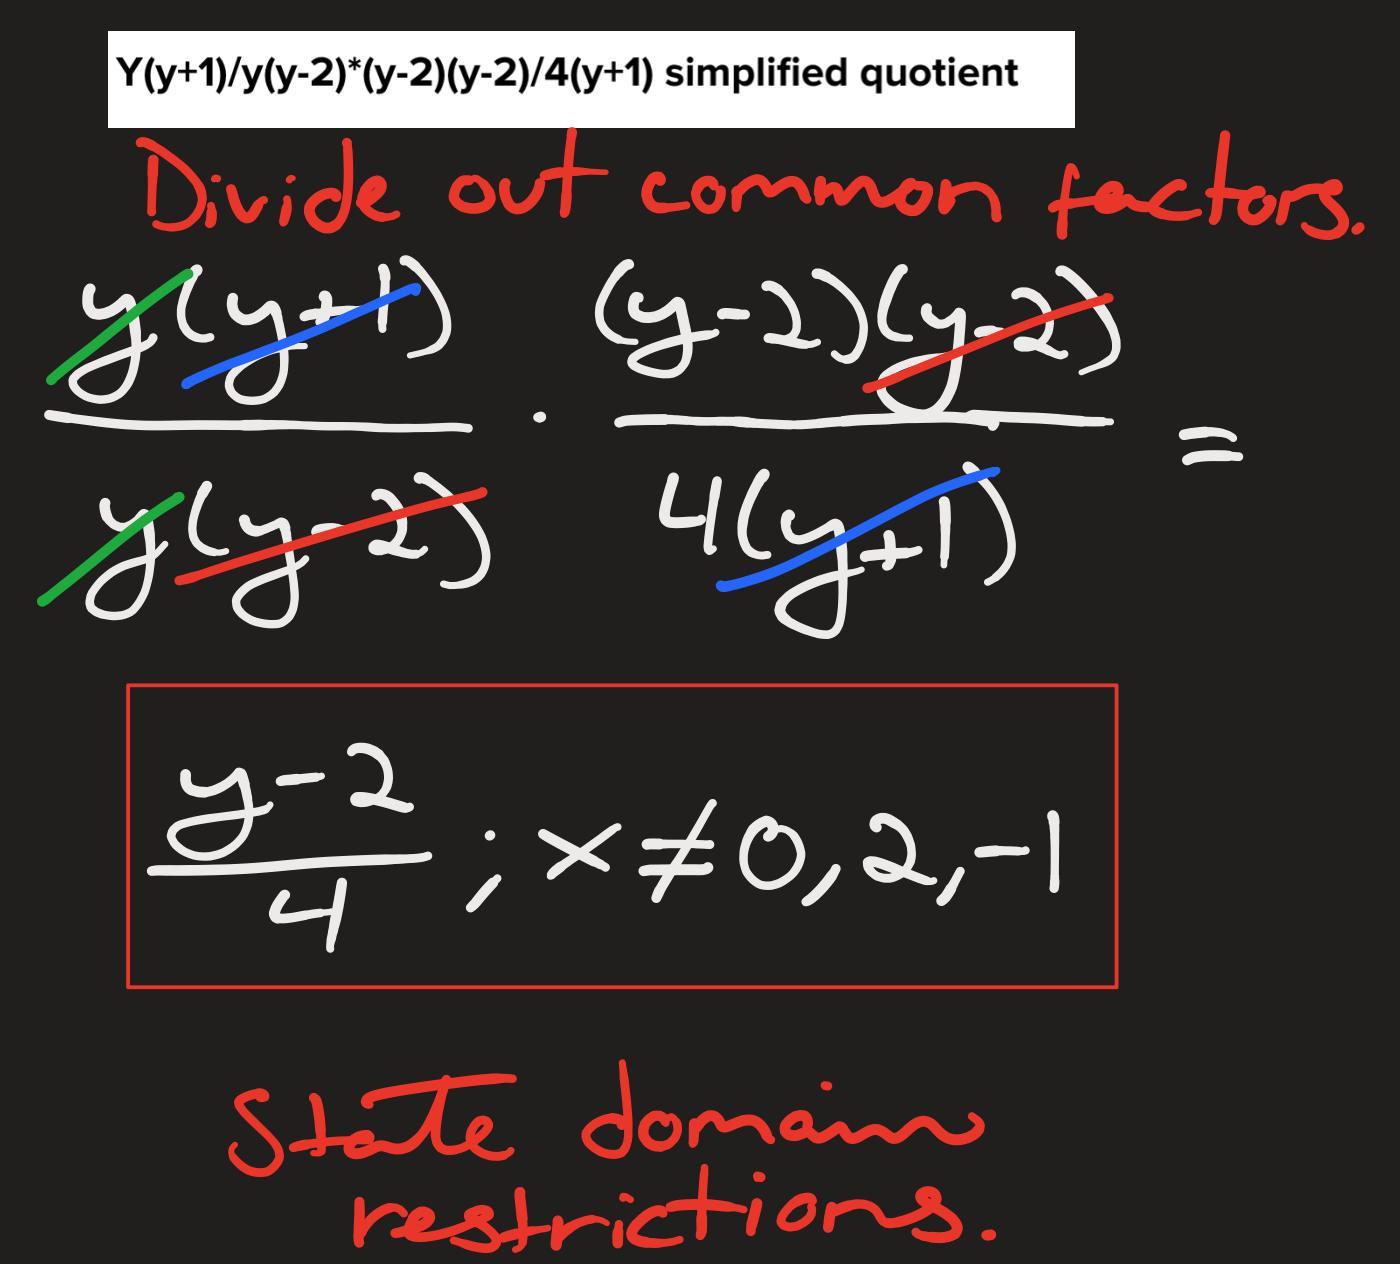 Y(y+1)/y(y-2)*(y-2)(y-2)/4(y+1) simplified quotient
Divide out common factors.
y(y+1) (y-2)(y-2)
· =
y(y-2) 4(y+1)
y-2
; x≠0,2,-1
4
State domain
restrictions.